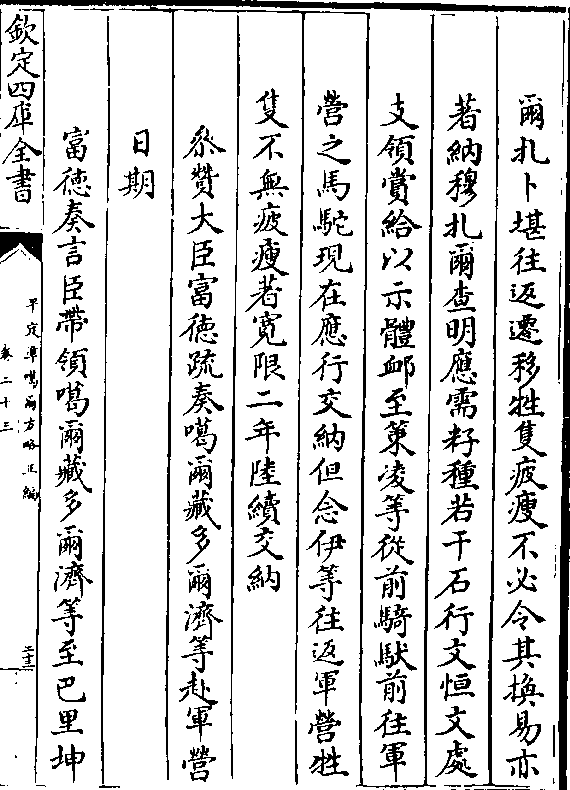 爾扎卜堪往返遷移牲隻疲瘦不必令其換易亦
著納穆扎爾查明應需籽種若干石行文恒文處
支領賞給以示體䘏至策凌等從前騎馱前往軍
營之馬駝現在應行交納但念伊等往返軍營牲
隻不無疲瘦著寛限二年陸續交納
叅贊大臣富徳疏奏噶爾藏多爾濟等赴軍營
日期
富徳奏言臣帶領噶爾藏多爾濟等至巴里坤
欽定四庫全書
平定準噶爾方略正編
卷二十三
二十三